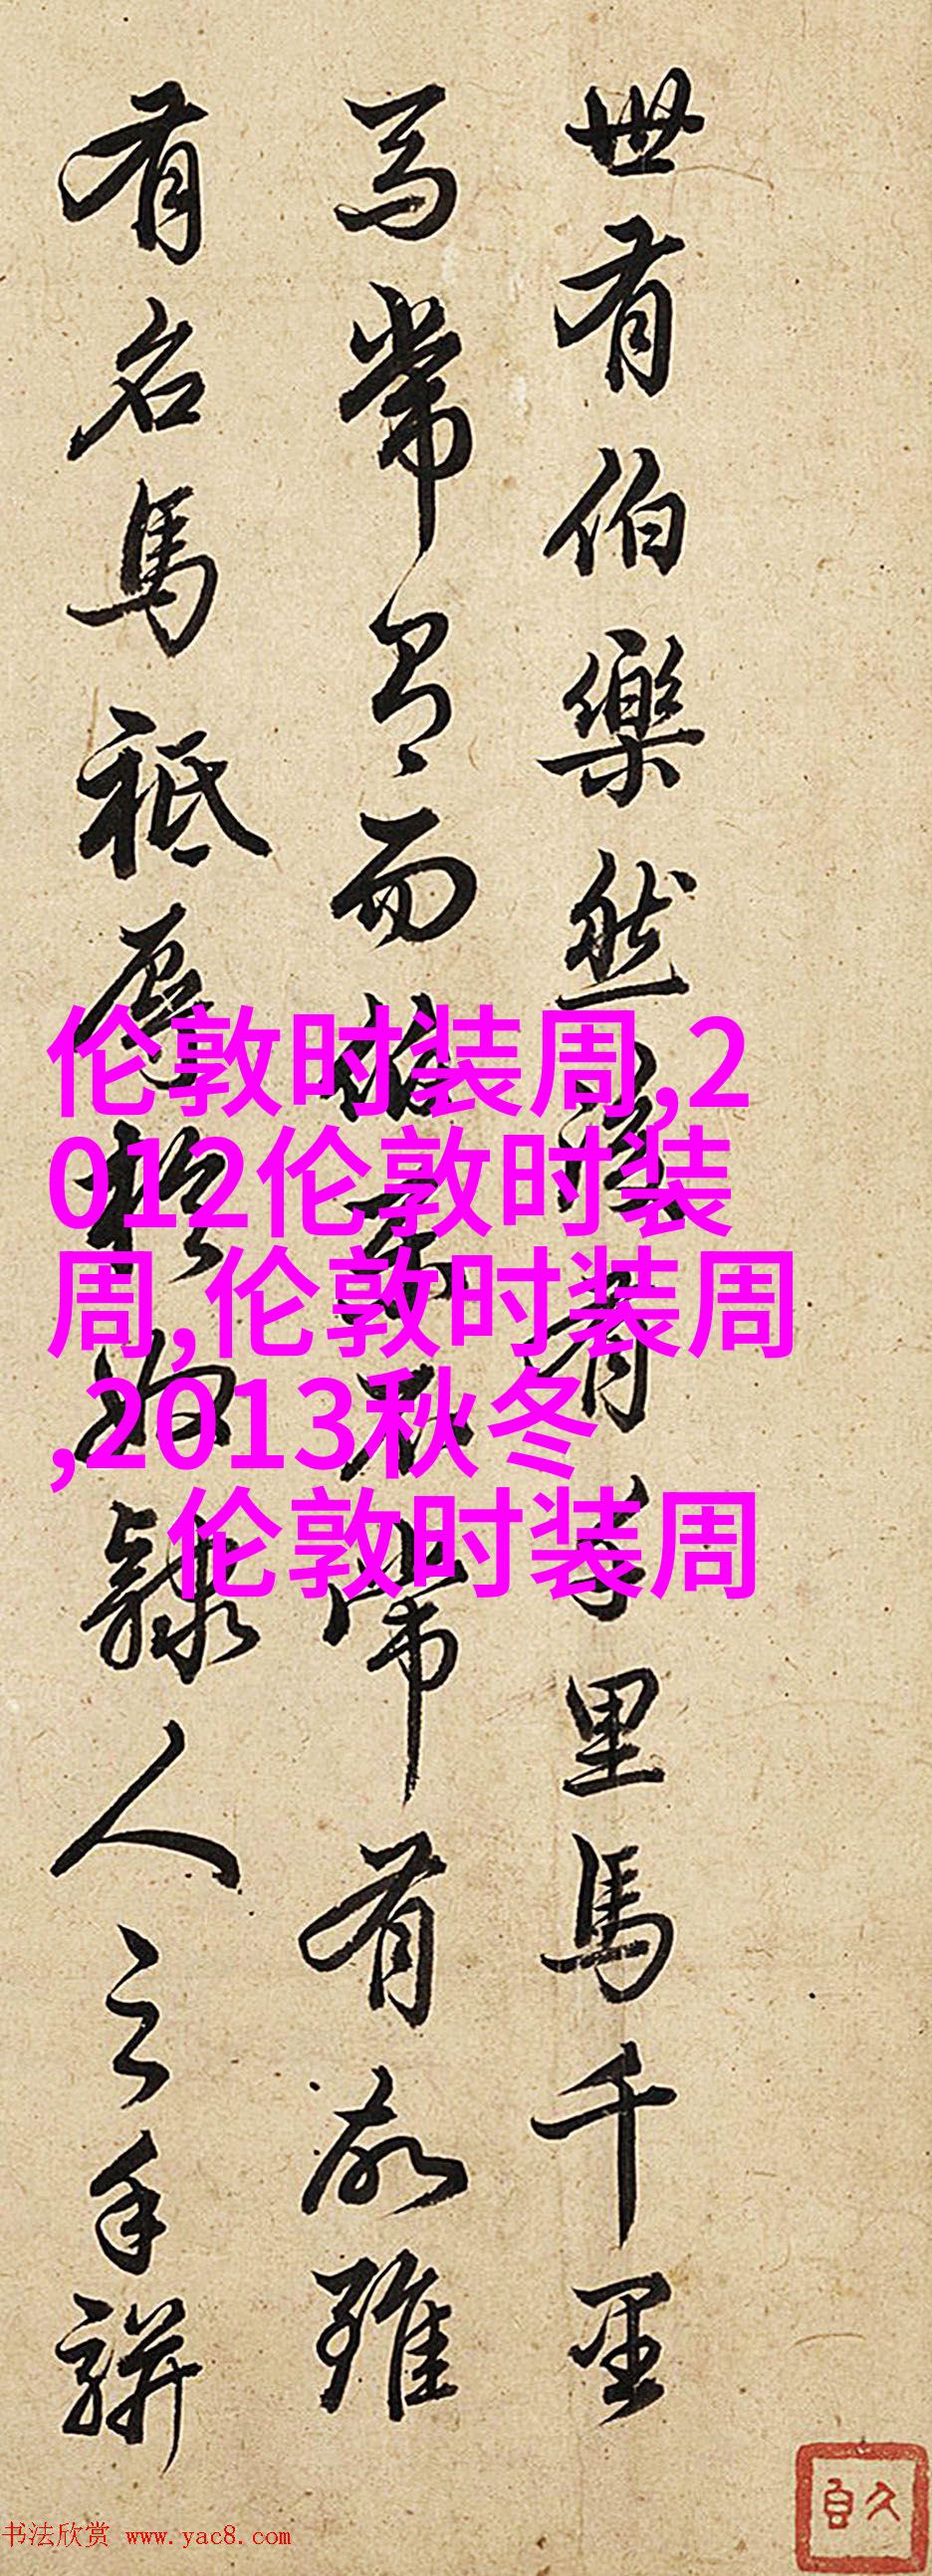 世有伯樂然後有千里馬千里
馬常有而伯樂不常有故雖
有名馬祗辱於奴隸人之手駢
伦敦时装周,2
012伦敦时装
周,伦敦时装周
,2013秋冬
伦敦时装周
书法欣赏 www.yac8.com